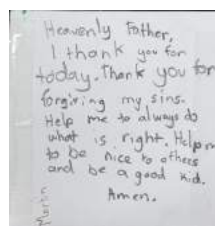 Heavenly Father,
I thank you for
today. Thank you for
forgiving my sins.
Help me to always do
what is right. Help m
to be nice to others
and be a good kid.
Amen.